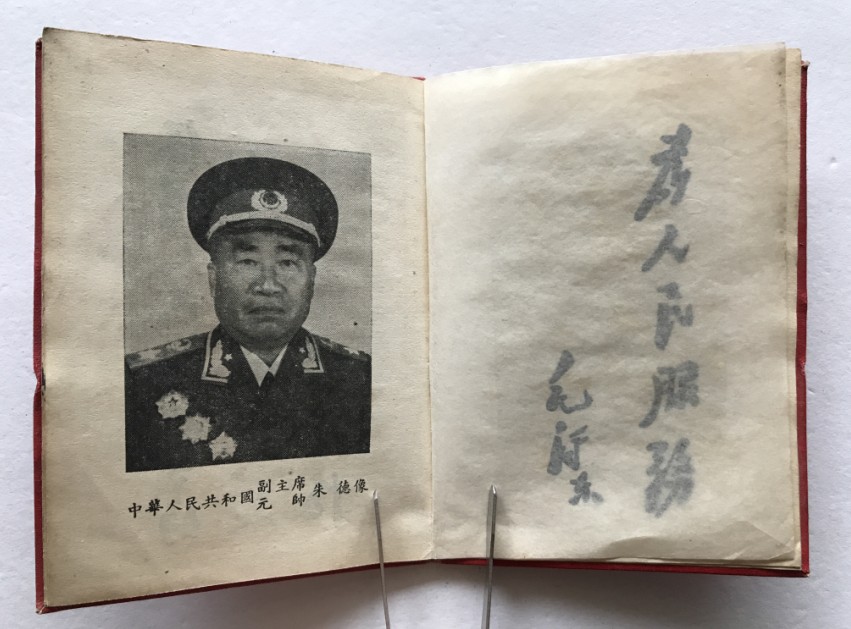 中華人民共和國副主席元帥朱德像
為人民服務
毛泽东